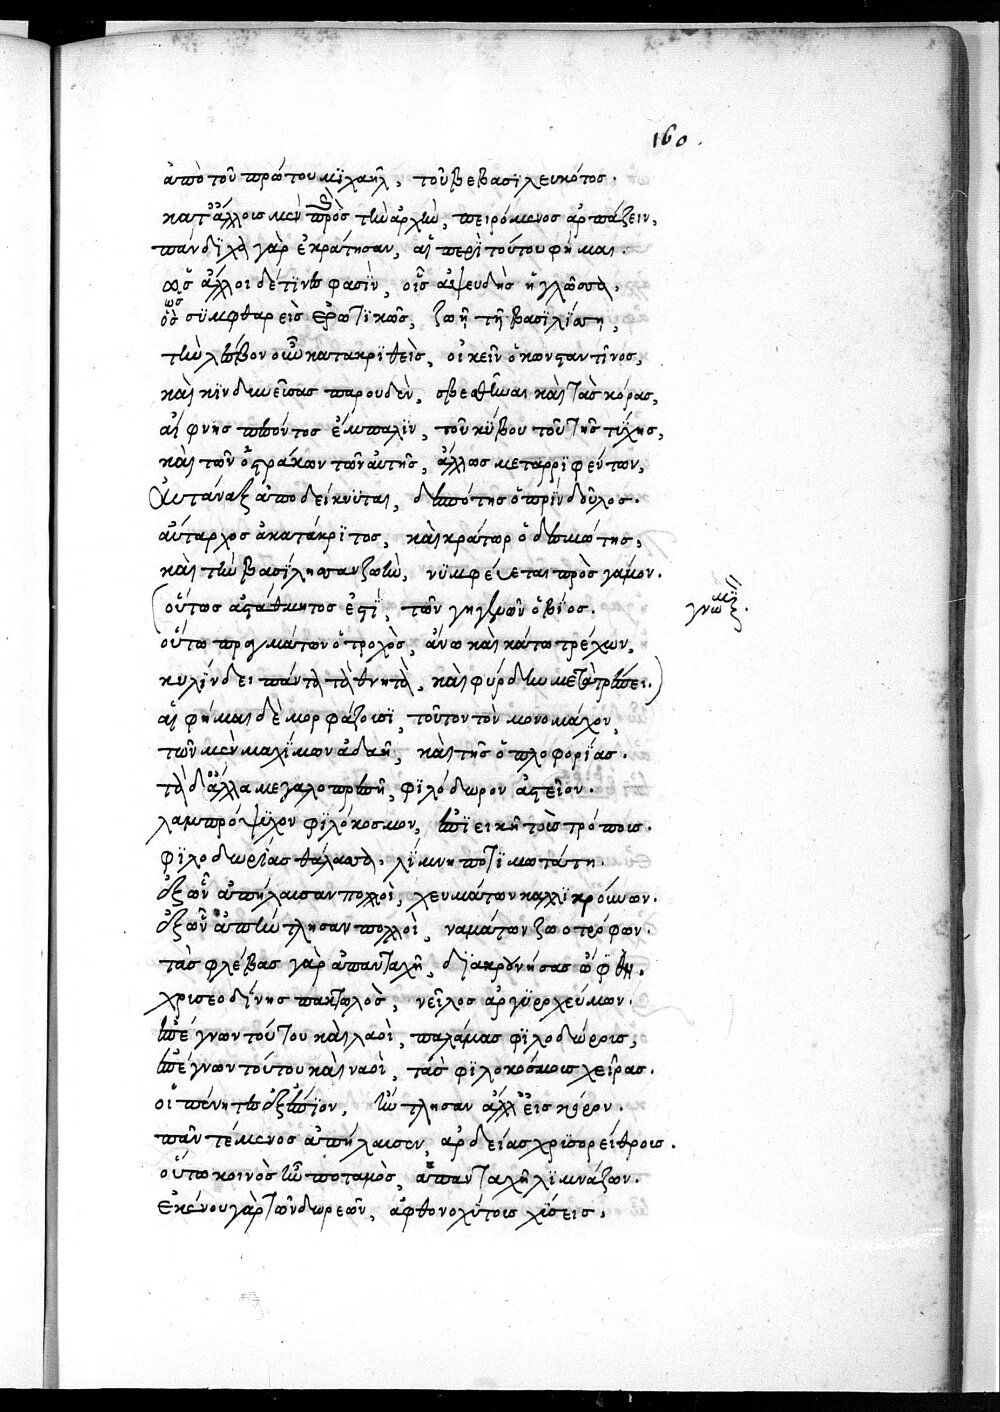 160.
ἀπὸ τοῦ πρώτου μϊχαὴλ, τοῦ βεβασϊλευκότος.
κατ' ἄλλοις μὲν πρὸς τὴν ἀρχὴν, πειρόμενος ἁρπάζειν,
πάνδϊχὰ γὰρ ἐκράτησαν, αἱ περὶ τούτου φῆμαι.
ὡς ἄλλοι δέ τϊνές φασϊν, οἷς ἀψευδὴς ἡ γλῶσσα,
ὡς σϋμφθαρεὶς ἐρωτϊκῶς, ζωῇ τῇ βασϊλϊσση,
τὴν λέσβον οὖν κατακρϊθεὶς, οἰκεῖν ὁ κωνσταντῖνος,
καὶ κϊνδυνεύσας παρουδὲν, σβεσθῆναι καὶ τὰς κόρας,
αἴφνης πεσόντος ἔμπαλϊν, τοῦ κύβου τοῦ τῆς τύχης,
καὶ τῶν ὀστράκων τῶν αὐτῆς, ἄλλως μεταρρϊφέντων,
αὐτάναξ ἀποδείκνϋται, δεσπότης ὁ πρὶν δοῦλος.
αὔταρχος ὁ κατάκρϊτος, καὶ κράτωρ ὁ δεσμώτης,
καὶ τὴν βασϊλησσαν ζωὴν, νϋμφεύεται πρὸς γάμον.
(οὕτως ἀστάθμητος ἐστϊ, τῶν γηγενῶν ὁ βϊος. γνωμϊ
οὕτω πραγμάτων ὁ τροχὸς, ἄνω καὶ κάτω τρέχων,
κυλϊνδει πάντα τὰ θνητὰ, καὶ φύρδην μετατρέπει.)
αἱ φῆμαι δὲ μορφάζουσϊ, τοῦτον τὸν μονομάχον,
τῶν μὲν μαχϊμων ἀδαῆ, καὶ τῆς ὁπλοφορϊας.
τὰ δ' ἄλλα μεγαλοπρεπῆ, φϊλόδωρον ἀστεῖον.
λαμπρόψϋχον φϊλόκοσμον, ἐπϊεικῆ τοῖς τρόποις.
φϊλοδωρϊας θάλασσα, λϊμνη ποτϊμωτάτη.
ἐξ ὧν ἀπήλαυσαν πολλοὶ, χευμάτων καλλϊκρούνων.
ἐξ ὧν ἀπήντλησαν πολλοὶ, ναμάτων ζωοτρόφων.
τὰς φλέβας γὰρ ἀπανταχῆ, δϊακρουνήσας ὤφθη.
χρυσεοδϊνης πακτωλὸς, νεῖλος ἀργϋρρχεύμων.
ἐπέγνων τούτου καὶ λαοὶ, παλάμας φϊλοδώρους,
ἐπέγνων τούτου καὶ ναοὶ, τὰς φϊλοκόσμους χεῖρας.
οἱ πένητες ἐξέπϊον, ἤντλησαν ἄλλ' εἰς κόρον.
πᾶν τέμενος ἀπήλαυσεν, ἀρδείας χρϋσορείθροις.
οὕτω κοινὸς ἦν ποταμὸς, ἀπανταχῆ λϊμνάζων.
ἐκείνου γὰρ τῶν δωρεῶν, ἀφθονοχύτοις χύσεις,